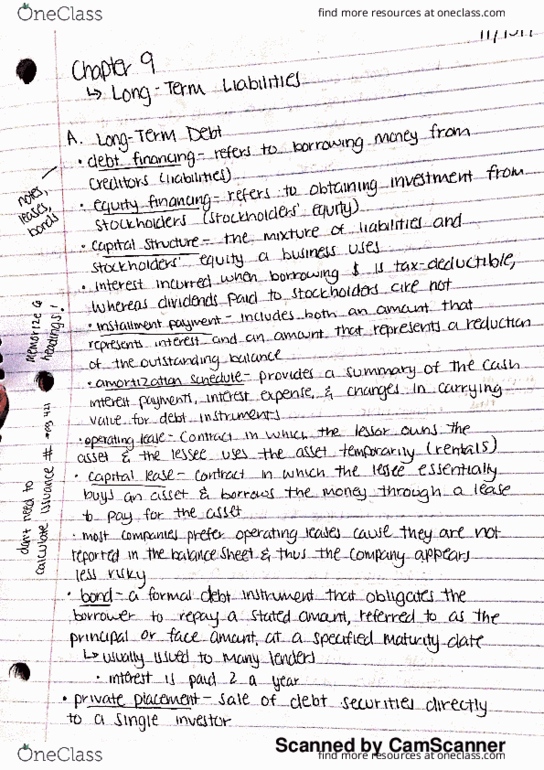 OneClass
find more resources at oneclass.com
Chapter 9
↳ Long-Term Liabilities
A. Long-Term Debt
• debt financing- refers to borrowing money from
creditors (liabilities)
notes,
leases,
bonds
• equity financing- refers to obtaining investment from
stockholders (stockholders' equity)
• capital structure- the mixture of liabilities and
stockholders' equity a business uses
• interest incurred when borrowing $ is tax-deductible,
whereas dividends paid to stockholders are not
• installment payment- includes both an amount that
represents interest and an amount that represents a reduction
of the outstanding balance
memorize
headings!
• amortization schedule- provides a summary of the cash
interest payments, interest expense, & changes in carrying
value for debt instruments
• operating lease- contract in which the lessor owns the
asset & the lessee uses the asset temporarily (rentals)
• capital lease- contract in which the lesee essentially
buys an asset & borrows the money through a lease
to pay for the asset
don't need to
calculate issuance # *pg 421
• most companies prefer operating leases cause they are not
reported in the balance sheet & thus the company appears
less risky
• bond- a formal debt instrument that obligates the
borrower to repay a stated amount, referred to as the
principal or face amount, at a specified maturity date
↳ usually issued to many lenders
• interest is paid 2 a year
• private placement- sale of debt securities directly
to a single investor
Scanned by CamScanner
OneClass
find more resources at oneclass.com